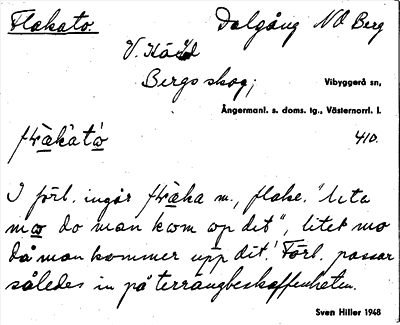 Flakato. Dalgång NO Berg
V. Käxed
Bergsskog; Vibyggerå sn,
Ångermanl. s. doms. tg., Västernorrl. l.
410.
I förl. ingår fɫàka m., flake. "lita
mo do man kom op dit", litet mo
då man kommer upp dit! Förl. passar
således in på terrängbeskaffenheten.
Sven Hiller 1948